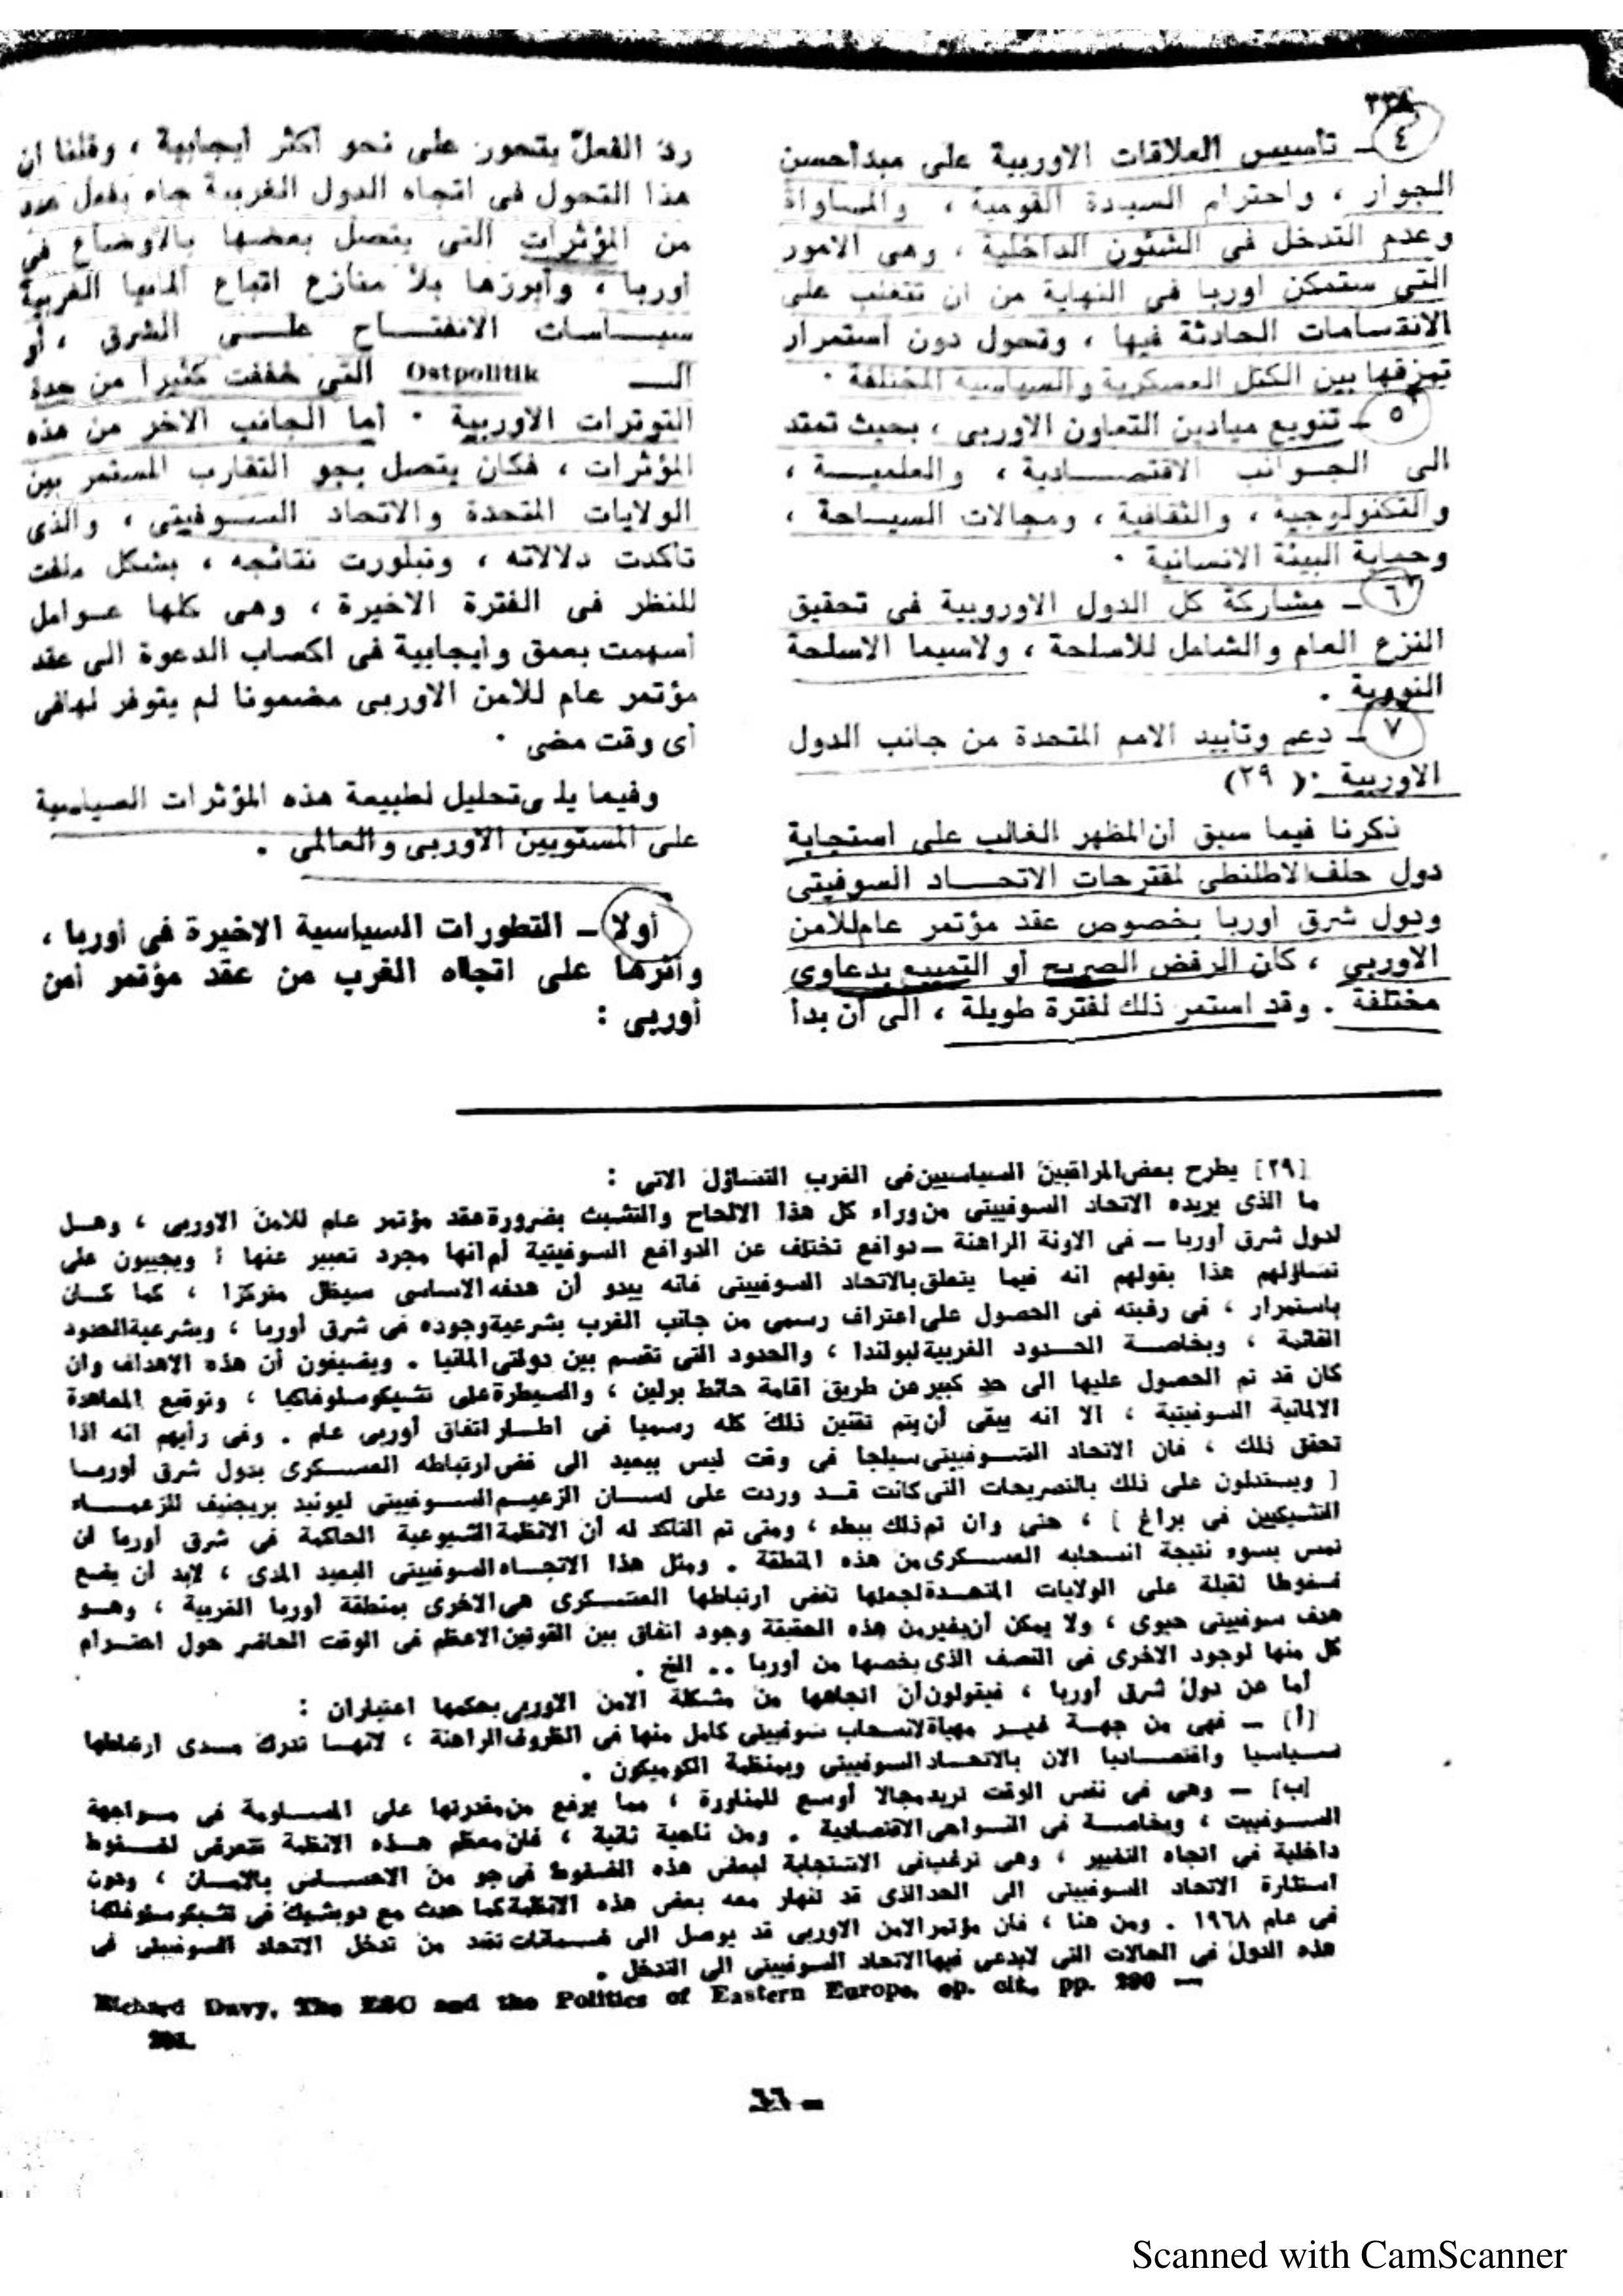 ٣٣٨
٤ ـ تأسيس العلاقات الاوربية على مبدأ حسن
الجوار ، واحترام السيادة القومية ، والمساواة
وعدم التدخل فى الشئون الداخلية ، وهى الامور
التى ستمكن أوربا فى النهاية من أن تتغلب على
الانقسامات الحادثة فيها ، وتحول دون استمرار
تمزقها بين الكتل العسكرية والسياسية المختلفة ·
٥ ـ تنويع ميادين التعاون الاوربى ، بحيث تمتد
الى الجوانب الاقتصادية ، والعلمية ،
والتكنولوجية ، والثقافية ، ومجالات السياحة ،
وحماية البيئة الانسانية ·
٦ ـ مشاركة كل الدول الاوروبية فى تحقيق
النزع العام والشامل للاسلحة ، ولاسيما الاسلحة
النووية .
٧ ـ دعم وتأييد الامم المتحدة من جانب الدول
الاوربية ·( ٢٩)
ذكرنا فيما سبق أن المظهر الغالب على استجابة
دول حلف الاطلنطى لمقترحات الاتحاد السوفيتى
ودول شرق أوربا بخصوص عقد مؤتمر عام للأمن
الاوربى ، كان الرفض الصريح أو التمييع بدعاوى
مختلفة . وقد استمر ذلك لفترة طويلة ، الى أن بدأ
رد الفعل يتحور على نحو أكثر ايجابية ، وقلنا ان
هذا التحول فى اتجاه الدول الغربية جاء بفعل عدد
من المؤثرات التى يتصل بعضها بالاوضاع فى
أوربا ، وأبرزها بلا منازع اتباع المانيا الغربية
سياسات الانفتاح على الشرق ، أو
الـ Ostpolitik التى خففت كثيرا من حدة
التوترات الاوربية · أما الجانب الاخر من هذه
المؤثرات ، فكان يتصل بجو التقارب المستمر بين
الولايات المتحدة والاتحاد السوفيتى ، والذى
تأكدت دلالاته ، وتبلورت نتائجه ، بشكل ملفت
للنظر فى الفترة الاخيرة ، وهى كلها عوامل
أسهمت بعمق وايجابية فى اكساب الدعوة الى عقد
مؤتمر عام للأمن الاوربى مضمونا لم يتوفر لها فى
أى وقت مضى ·
وفيما يلى تحليل لطبيعة هذه المؤثرات السياسية
على المستويين الاوربى والعالمى .
أولا ـ التطورات السياسية الاخيرة فى أوربا ،
وأثرها على اتجاه الغرب من عقد مؤتمر أمن
أوربى :
[٢٩] يطرح بعض المراقبين السياسيين فى الغرب التساؤل الاتى :
ما الذى يريده الاتحاد السوفييتى من وراء كل هذا الالحاح والتشبث بضرورة عقد مؤتمر عام للامن الاوربى ، وهل
لدول شرق أوربا ـ فى الاونة الراهنة ـ دوافع تختلف عن الدوافع السوفيتية أم انها مجرد تعبير عنها ؟ ويجيبون على
تساؤلهم هذا بقولهم انه فيما يتعلق بالاتحاد السوفييتى فانه يبدو أن هدفه الاساسى سيظل متركزا ، كما كان
باستمرار ، فى رغبته فى الحصول على اعتراف رسمى من جانب الغرب بشرعية وجوده فى شرق أوربا ، وبشرعية الحدود
القائمة ، وبخاصة الحدود الغربية لبولندا ، والحدود التى تقسم بين دولتى المانيا . ويضيفون أن هذه الاهداف وان
كان قد تم الحصول عليها الى حد كبير عن طريق اقامة حائط برلين ، والسيطرة على تشيكوسلوفاكيا ، وتوقيع المعاهدة
الالمانية السوفيتية ، الا انه يبقى أن يتم تقنين ذلك كله رسميا فى اطار اتفاق أوربى عام . وفى رأيهم انه اذا
تحقق ذلك ، فان الاتحاد السوفييتى سيلجا فى وقت ليس ببعيد الى فض ارتباطه العسكرى بدول شرق أوربا
[ ويستدلون على ذلك بالتصريحات التى كانت قد وردت على لسان الزعيم السوفييتى ليونيد بريجنيف للزعماء
التشيكيين فى براغ ] ، حتى وان تم ذلك ببطء ، ومتى تم التاكد له أن الانظمة الشيوعية الحاكمة فى شرق أوربا لن
تمس بسوء نتيجة انسحابه العسكرى من هذه المنطقة . ومثل هذا الاتجاه السوفييتى البعيد المدى ، لابد أن يضع
ضغوطا ثقيلة على الولايات المتحدة لجعلها تفض ارتباطها العسكرى هى الاخرى بمنطقة أوربا الغربية ، وهو
هدف سوفييتى حيوى ، ولا يمكن أن يغير من هذه الحقيقة وجود اتفاق بين القوتين الاعظم فى الوقت الحاضر حول احترام
كل منها لوجود الاخرى فى النصف الذى يخصها من أوربا .. الخ .
أما عن دول شرق أوربا ، فيقولون أن اتجاهها من مشكلة الامن الاوربى يحكمها اعتباران :
[أ] ـ فهى من جهة غير مهيأة لانسحاب سوفييتى كامل منها فى الظروف الراهنة ، لانها تدرك مدى ارتباطها
سياسيا واقتصاديا الان بالاتحاد السوفييتى وبمنظمة الكوميكون .
[ب] ـ وهى فى نفس الوقت تريد مجالا أوسع للمناورة ، مما يرفع من مقدرتها على المساومة فى مواجهة
السوفييت ، وبخاصة فى النواحى الاقتصادية . ومن ناحية ثانية ، فان معظم هذه الانظمة تتعرض لضغوط
داخلية فى اتجاه التغيير ، وهى ترغب فى الاستجابة لبعض هذه الضغوط فى جو من الاحساس بالامان ، ودون
استثارة الاتحاد السوفييتى الى الحد الذى قد تنهار معه بعض هذه الانظمة كما حدث مع دوبشيك فى تشيكوسلوفاكيا
فى عام ١٩٦٨ . ومن هنا ، فان مؤتمر الامن الاوربى قد يوصل الى ضمانات تحد من تدخل الاتحاد السوفييتى فى
هذه الدول فى الحالات التى لا يدعى فيها الاتحاد السوفييتى الى التدخل .
Richard Davy, The ESC and the Politics of Eastern Europe, op. cit., pp. 290 —
291.
ـ ٦٦
Scanned with CamScanner